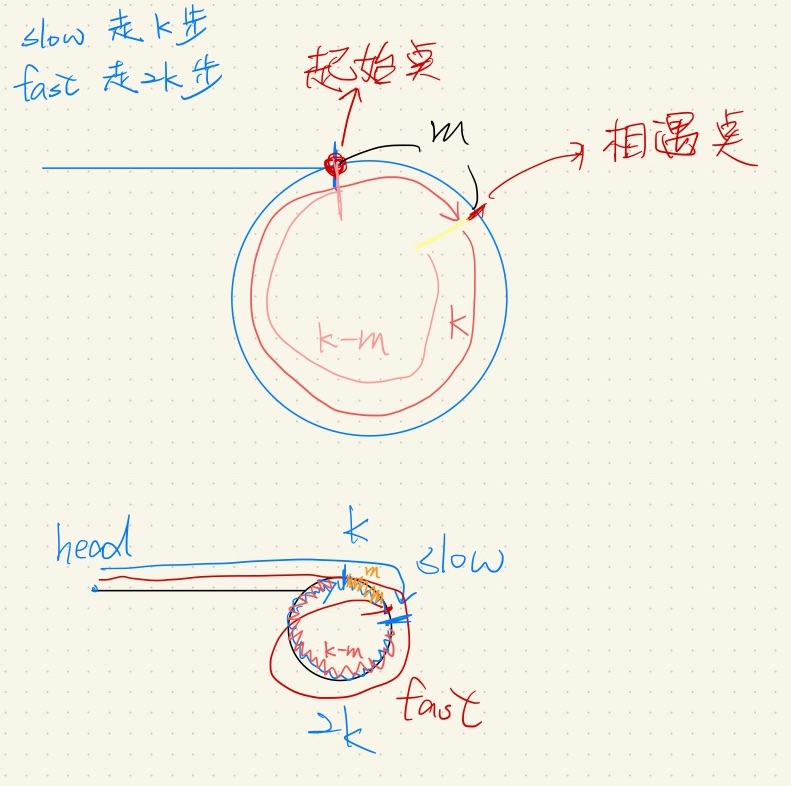 slow 走k步
fast 走2k步
起始点
m
相遇点
k
k-m
k
head
slow
m
k-m
fast
2k